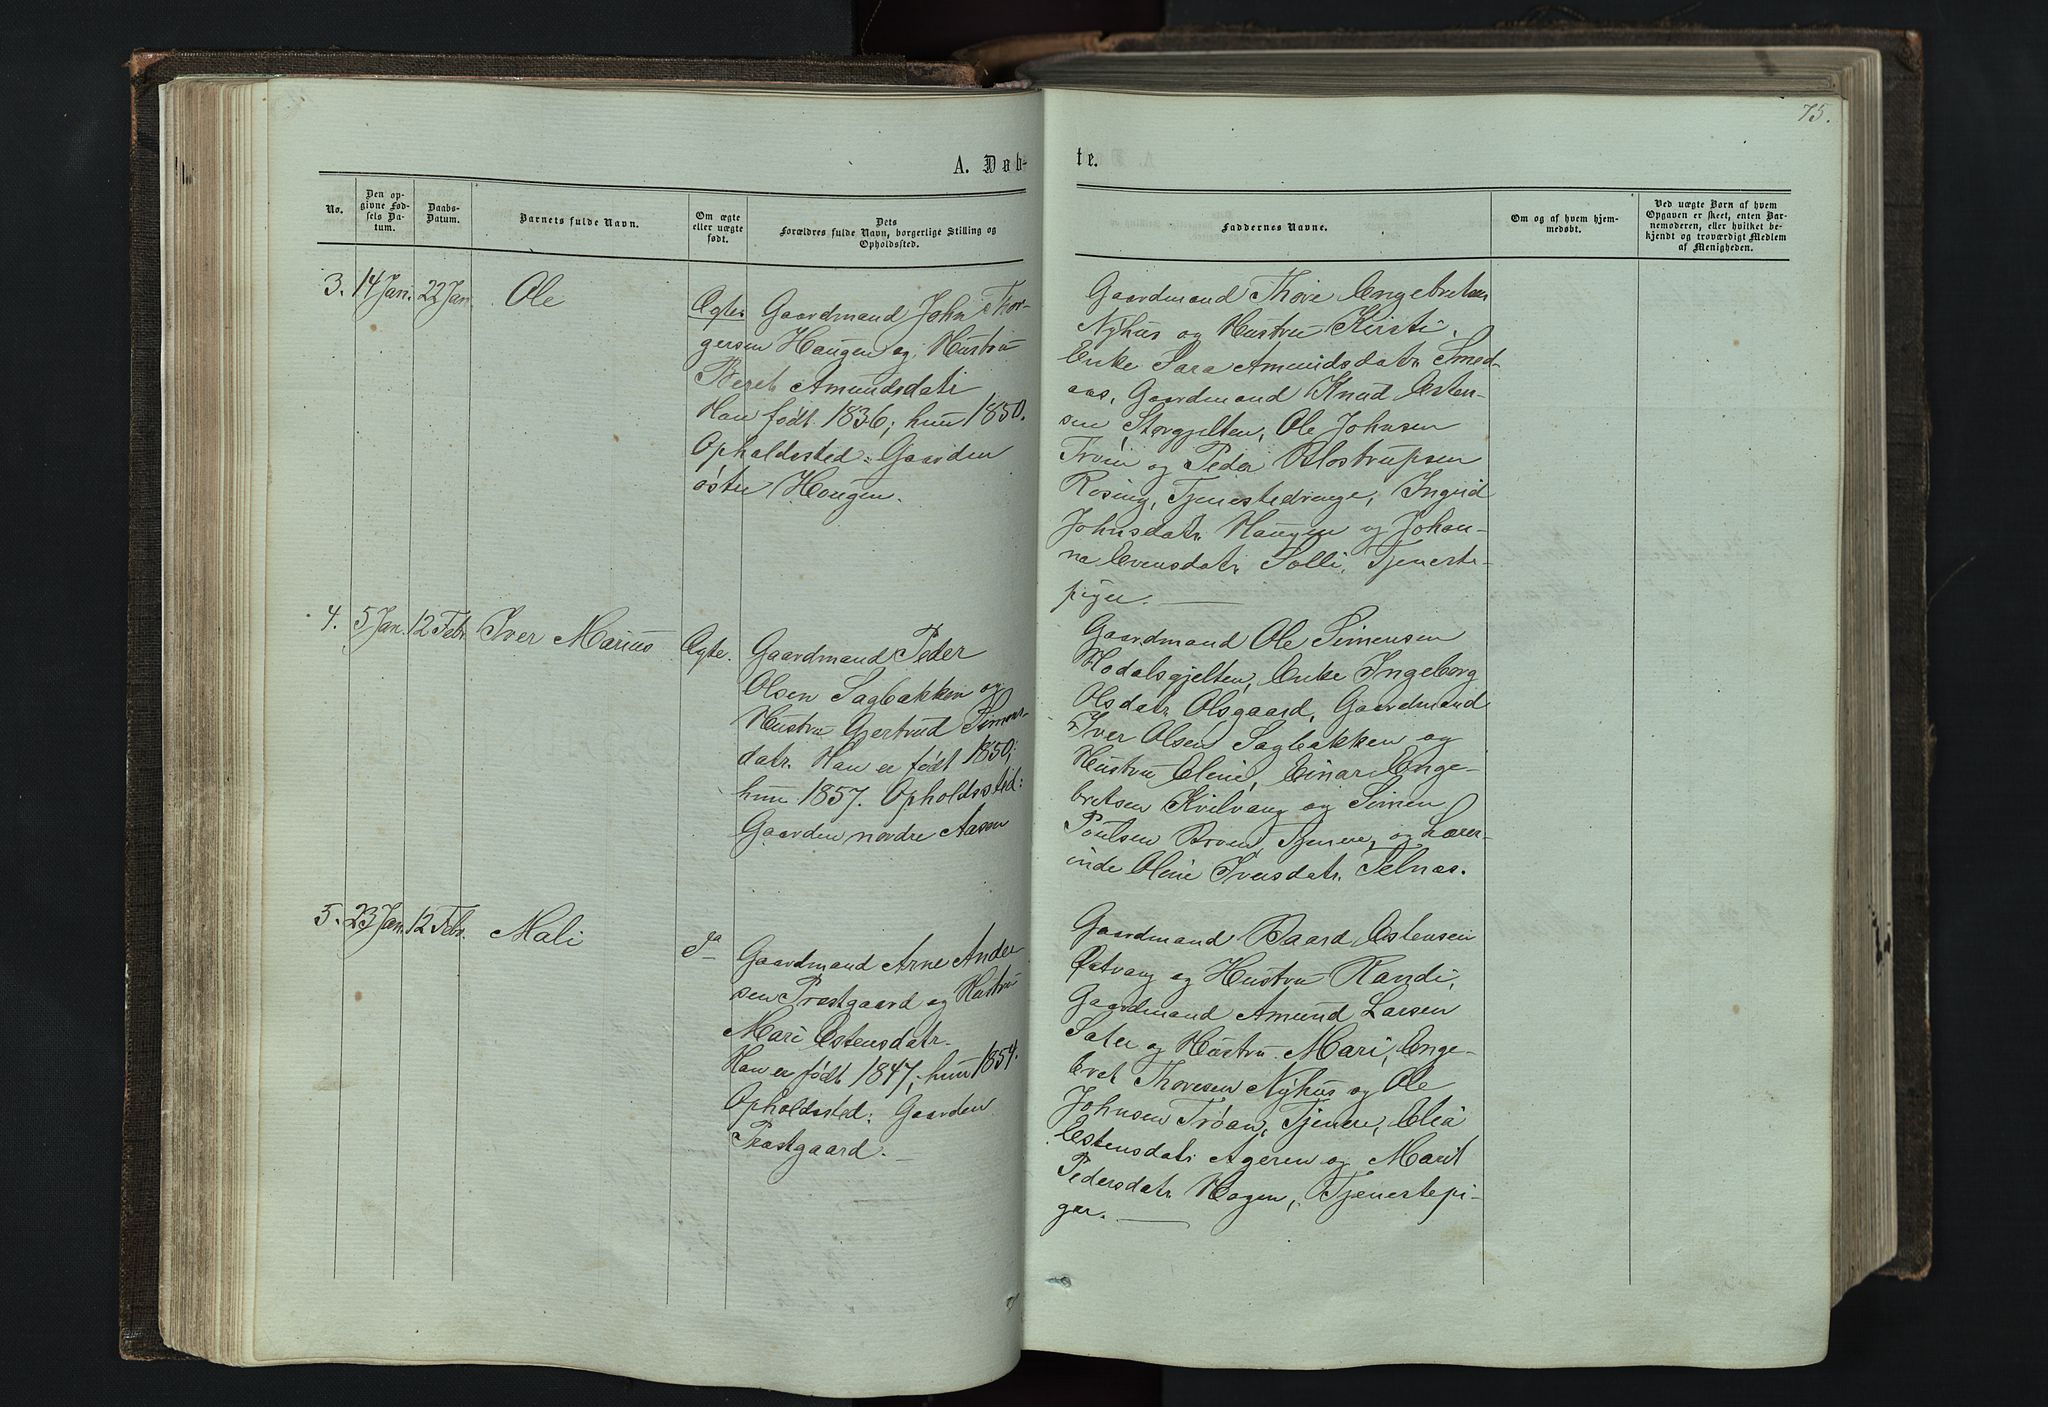 75.
A. Døb-
te.
No.
Den op-
givne Fød-
sels Da-
tum.
Daabs-
Datum.
Barnets fulde Navn.
Om ægte
eller uægte
født.
Dets
Forældres fulde Navn, borgerlige Stilling og
Opholdssted.
Faddernes Navne.
Om og af hvem hjem-
medøbt.
Ved uægte Børn af hvem
Opgaven er skeet, enten Bar-
nemoderen, eller hvilket be-
kjendt og troværdigt Medlem
af Menigheden.
3. 14 Jan. 22 Jan. Ole
Ægte.
Gaardmand John Thor-
gersen Haugen og Hustru
Beret Amundsdatr
Han født 1836; hun 1850.
Opholdssted: Gaarden
østre Hougen.
Gaardmand Thore Engebretsen
Nyhus og Hustru Kirsti,
Enke Sara Amundsdatr Smed-
aas, Gaardmand Knud Esten-
sen Storgjelten, Ole Johnsen
Trøen og Peder Olostrupsen
Rosing, Tjenestedrenge, Ingrid
Johnsdatr Haugen og Johan-
na Evensdatr Solli, Tjeneste-
piger.
4. 5 Jan. 12 Febr. Iver Marius
Ægte.
Gaardmand Peder
Olsen Sagbakken og
Hustru Gjertrud Simens-
datr. Han er født 1850;
hun 1857. Opholdssted:
Gaarden nordre Aasen
Gaardmand Ole Simensen
Hodalsgjelten, Enke Ingeborg
Olsdatr Olsgaard, Gaardmand
Iver Olsen Sagbakken og
Hustru Oline, Einar Enge-
bretsen Kvilvang og Simen
Poulsen Broen, Tjenere, og Lærer-
inde Oline Iversdatr Telnæs.
5. 23 Jan. 12 Febr. Mali
Ja
Gaardmand Arne Ander-
sen Præstgaard og Hustru
Mari Estensdatr.
Han er født 1847; hun 1854.
Opholdssted: Gaarden
Præstgaard.
Gaardmand Baard Estensen
Østvang og Hustru Randi,
Gaardmand Amund Larsen
Sater og Hustru Mari, Enge-
bret Thoresen Nyhus og Ole
Johnsen Trøan, Tjenere, Elia
Estensdatr Ageren og Marit
Pedersdatr Hagen, Tjenestepi-
ger.